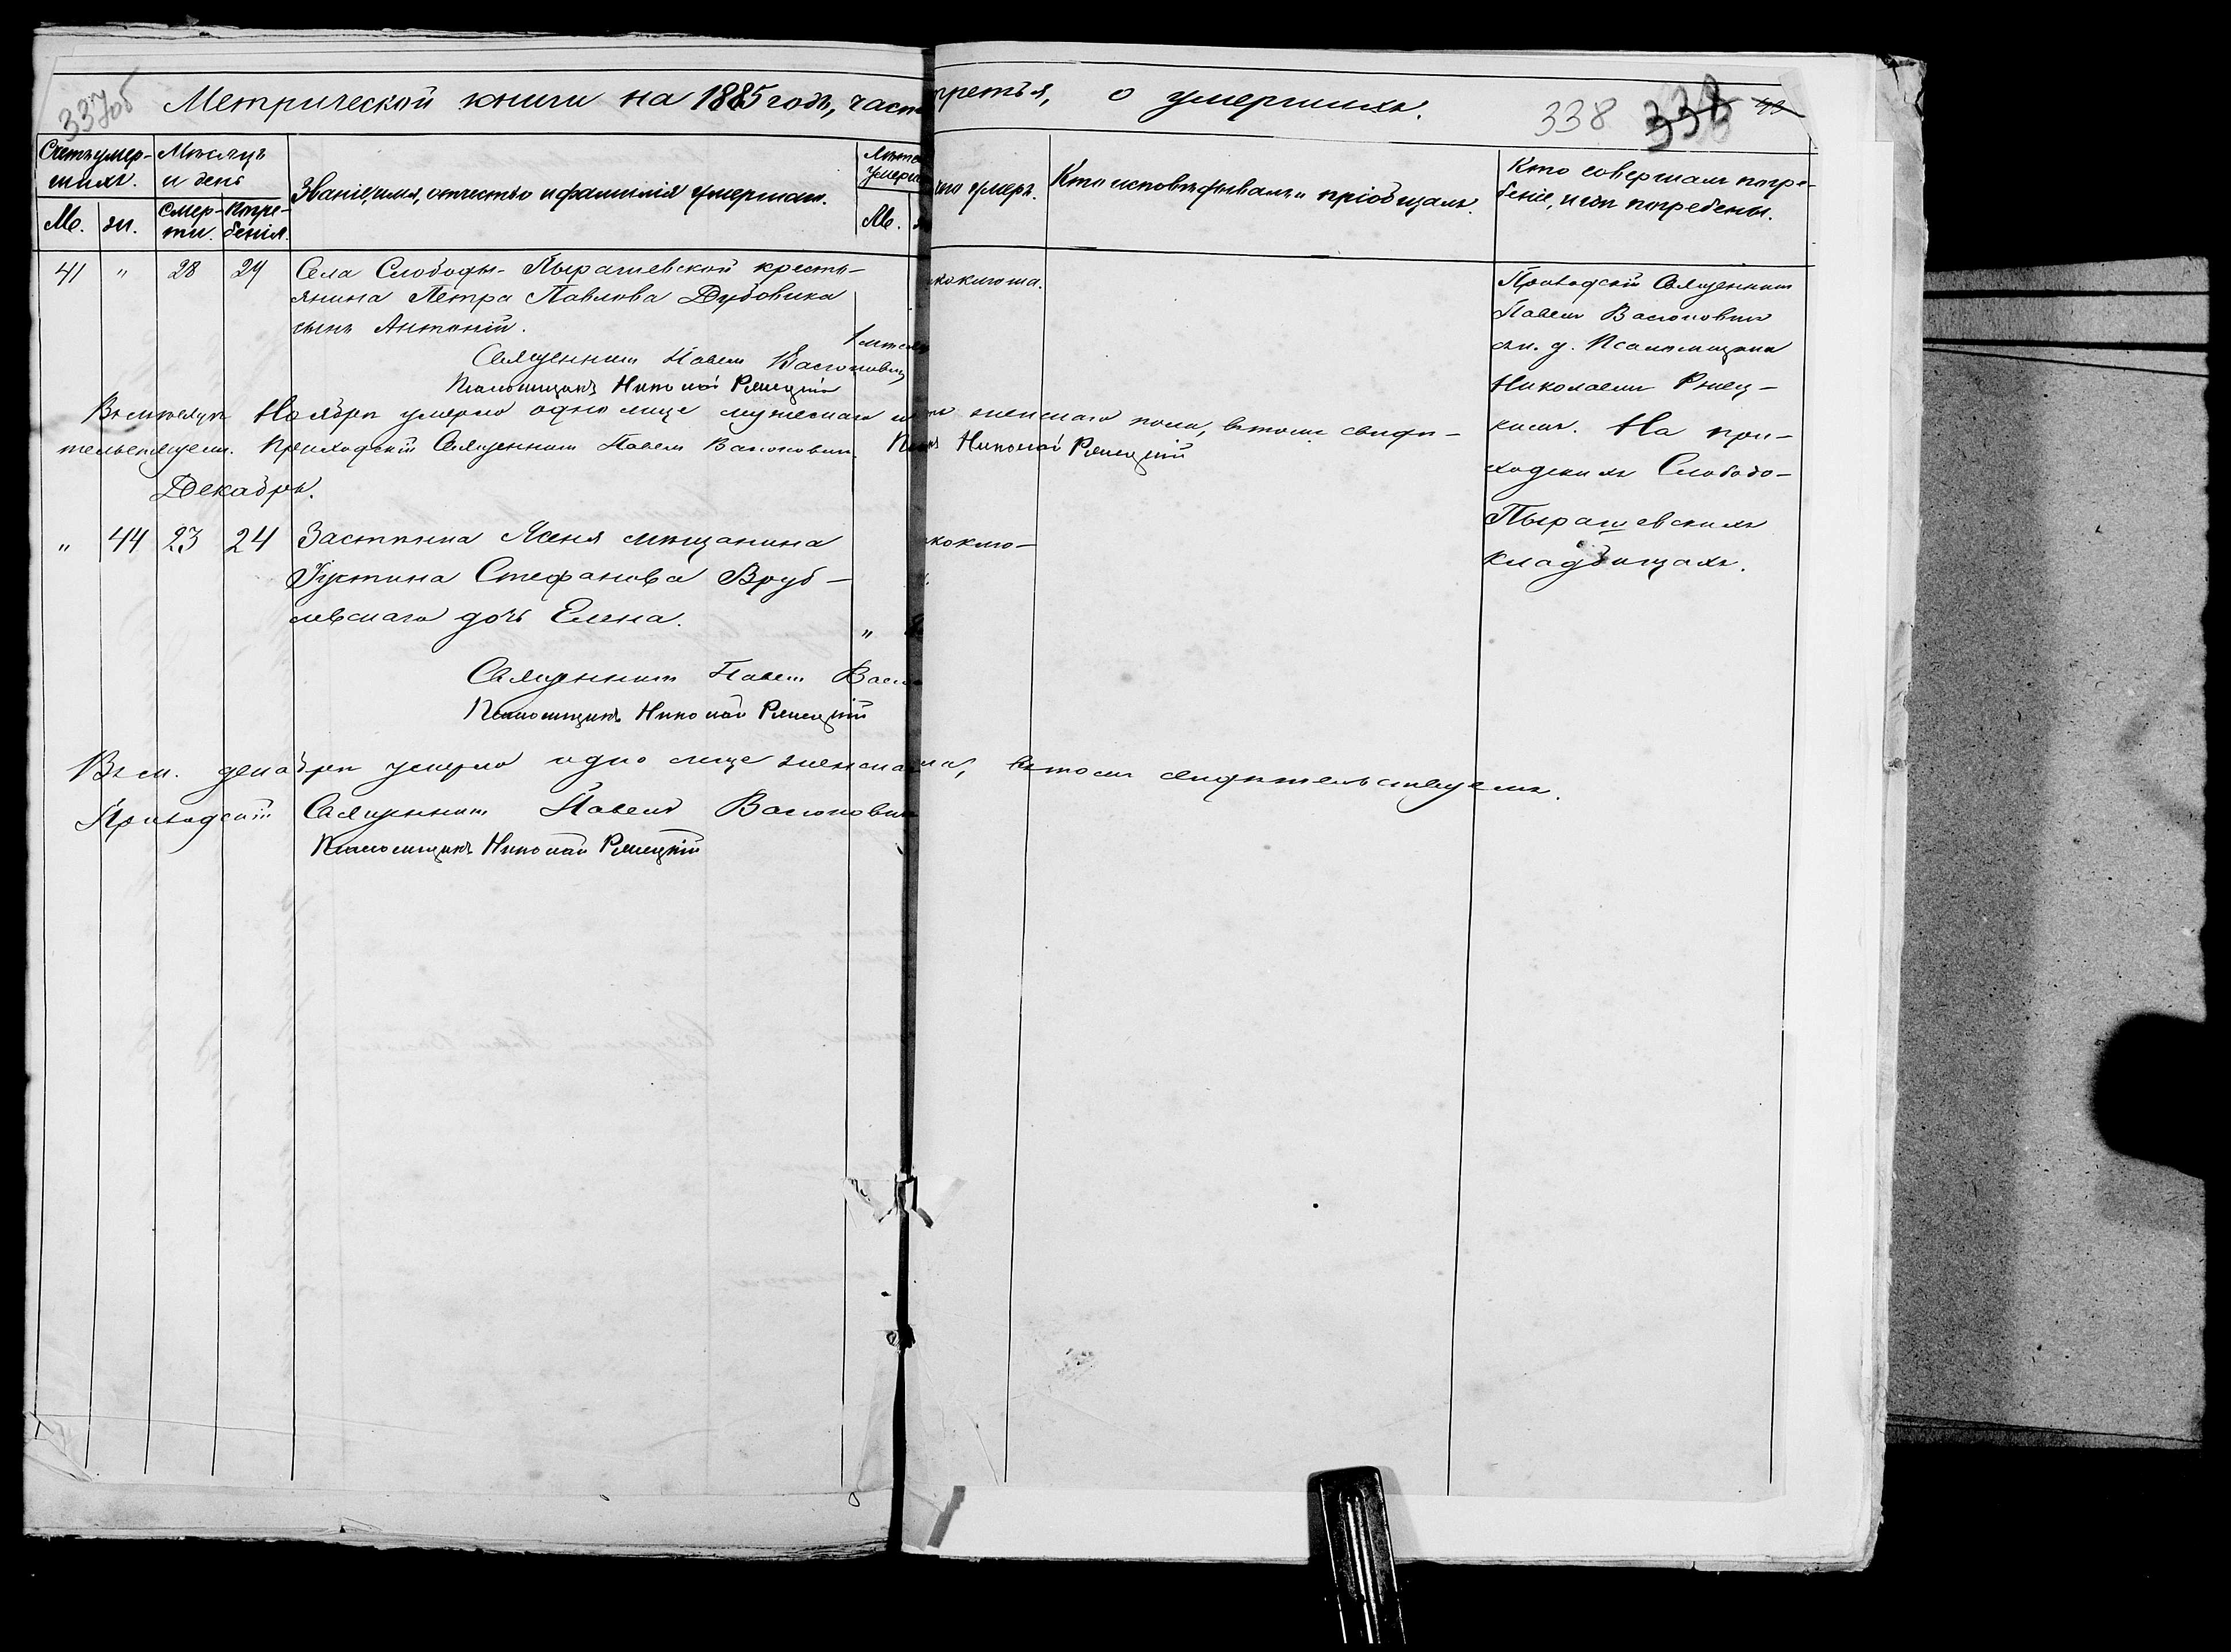 337об
Метрической книги на 1885 годъ, часть третья, о умершихъ.
338 338
Счетъ умер-
шихъ.
Мѣсяцъ
и день
Званіе, имя, отчество и фамилія умершаго.
Лѣта
умерш
чего умеръ.
Кто исповѣдывалъ и пріобщалъ.
Кто совершалъ погре-
беніе, и гдѣ погребены.
М. ж.
Смер-
ти.
Погре-
бенія.
М.
41 " 28 29 Села Слободы-Пырашевской кресть-
янина Петра Павлова Дубовика
сынъ Антоній.
1 мѣсяц
коклюша.
Священникъ Павелъ
Псаломщикъ Николай
Приходскій Священникъ
Павелъ
съ и. д. Псаломщика
Николаемъ
На при-
ходскихъ Слободо-
Пырашевскихъ
кладбищахъ.
Въ мѣсяцѣ Ноябрѣ умерло одно лице мужескаго женскаго пола, въ томъ свидѣ-
тельствуемъ. Приходскій Священникъ Павелъ Николай
Декабрь.
" 44 23 24 Застѣнка Ясеня мѣщанина
Іустина Стефанова Вруб-
левскаго дочь Елена.
"
коклю-
Священникъ Павелъ
Псаломщикъ Николай
Въ м. декабрѣ умерло одно лице женскаго въ томъ свидѣтельствуемъ.
Приходскій Священникъ Павелъ
Псаломщикъ Николай